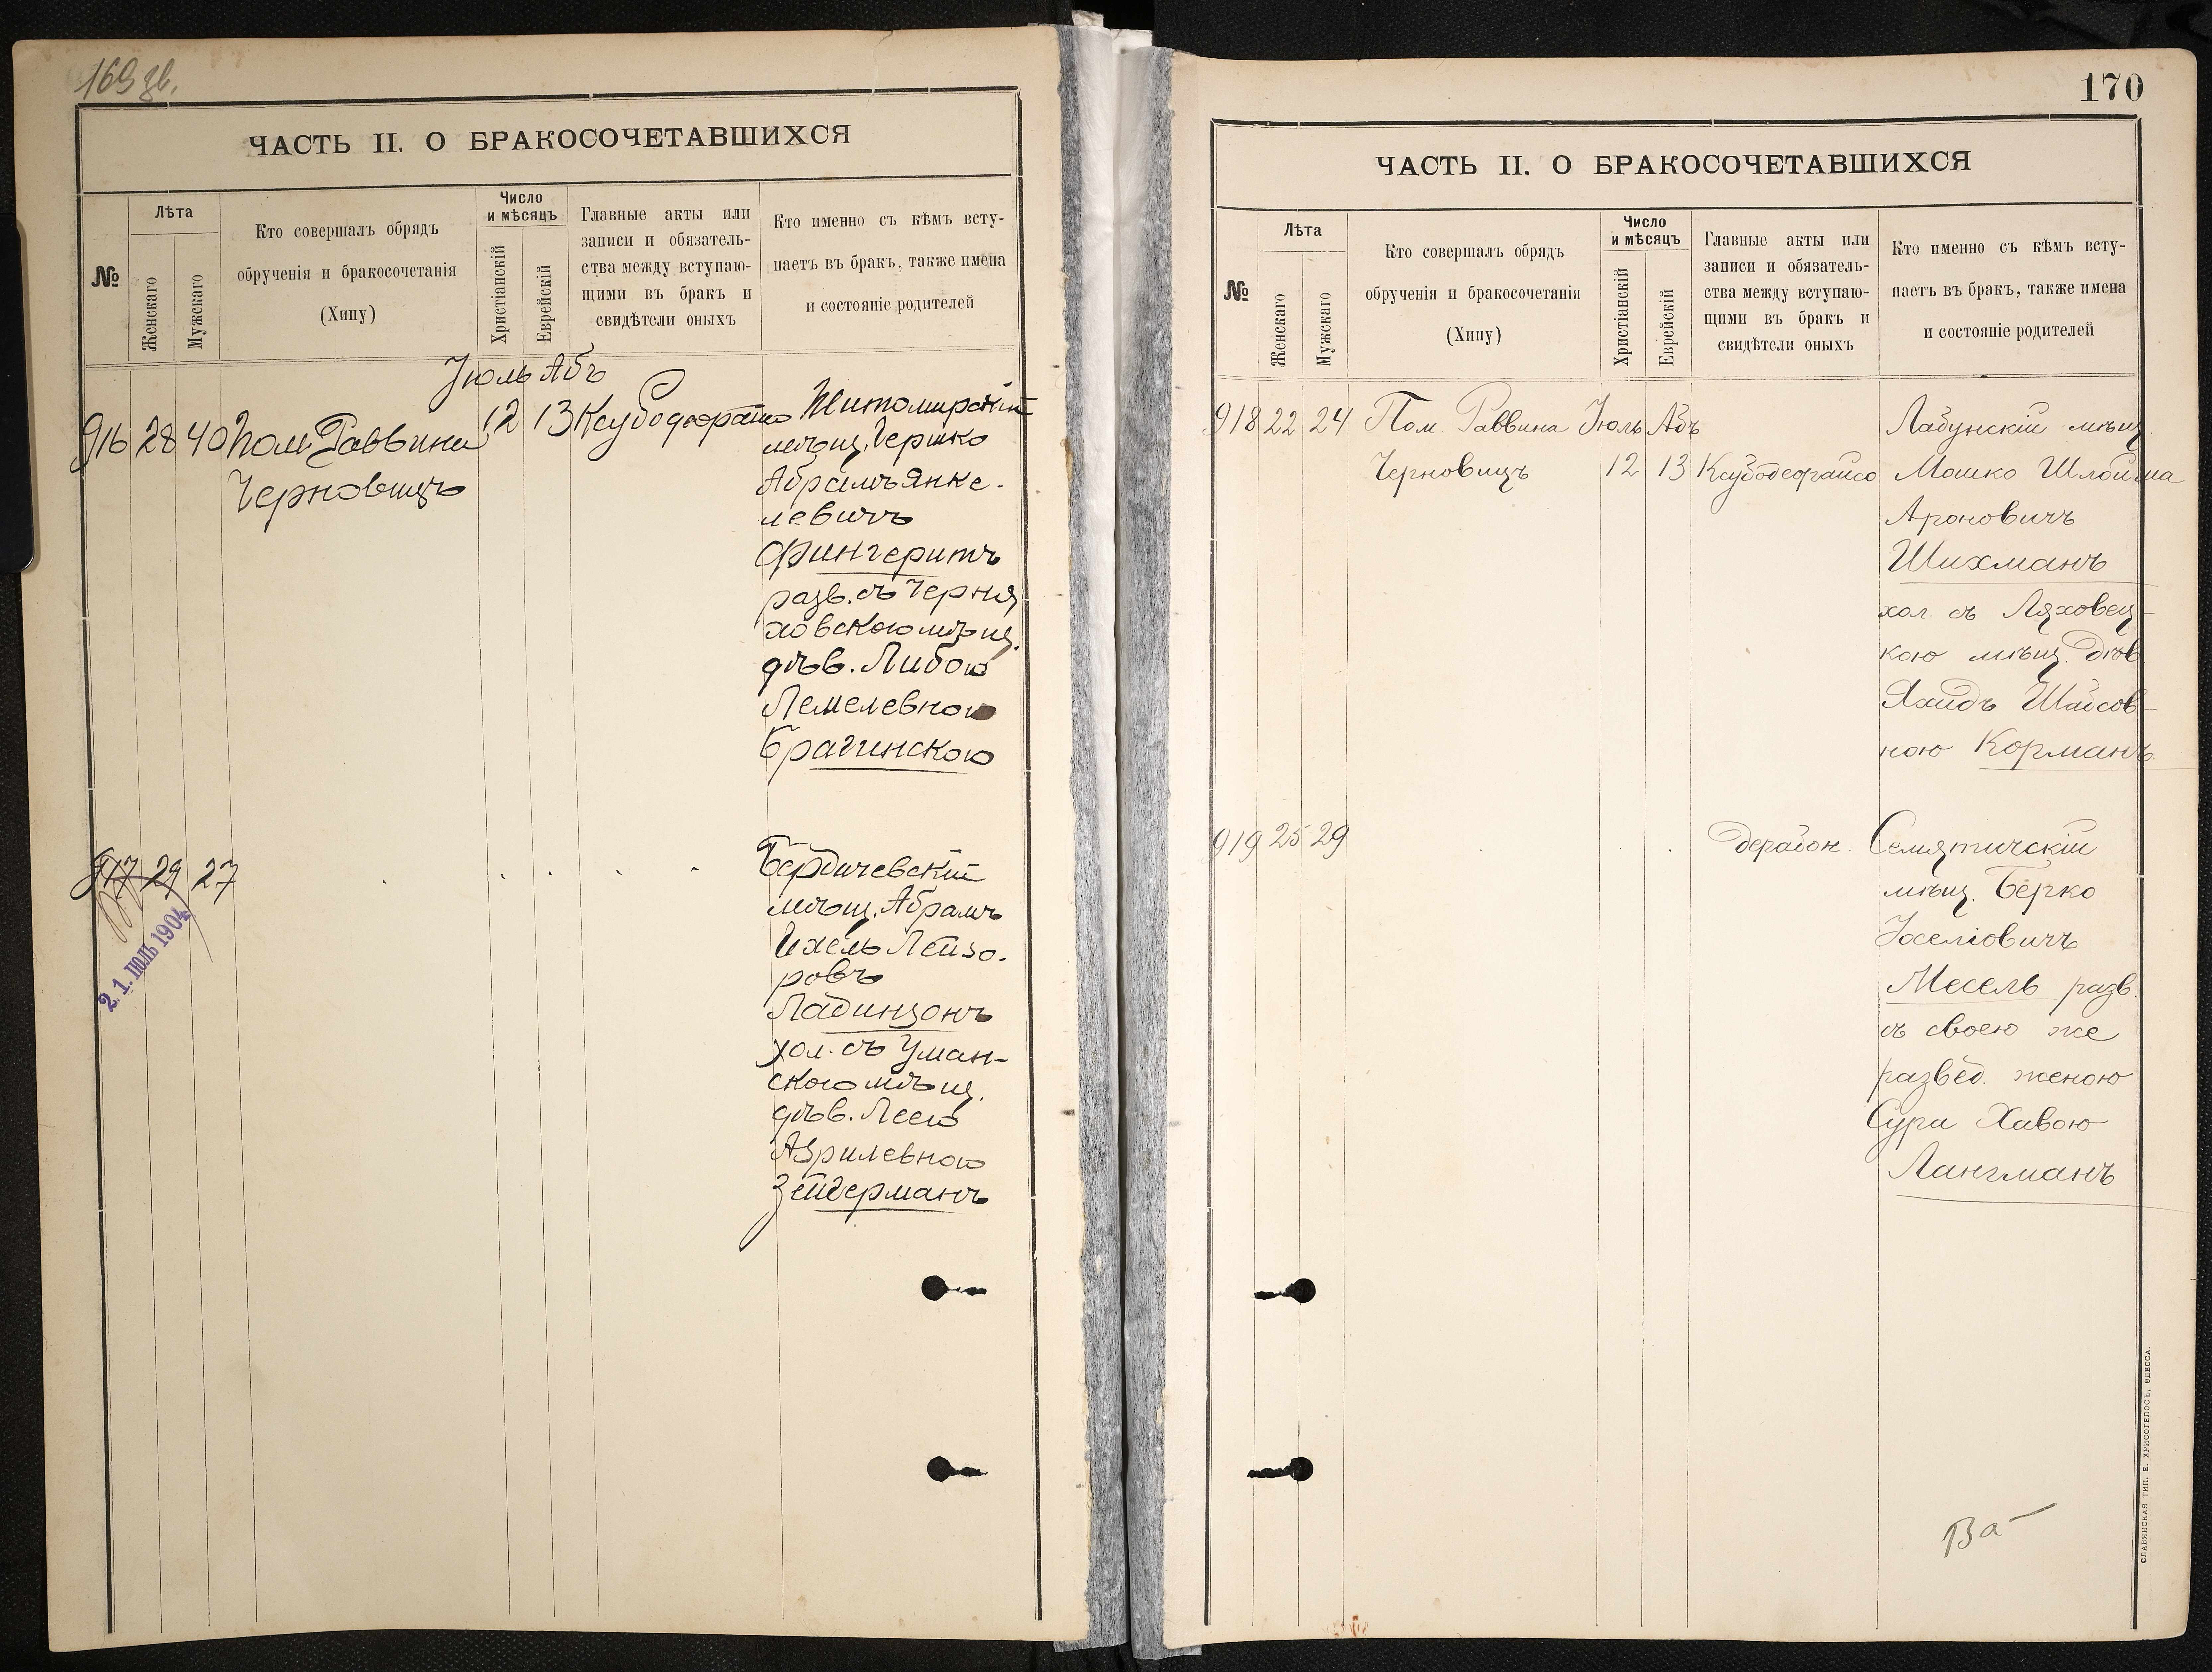 169 зв.
ЧАСТЬ II. О БРАКОСОЧЕТАВШИХСЯ
№
Лѣта
Женскаго
Мужскаго
Кто совершалъ обрядъ
обрученія и бракосочетанія
(Хипу)
Число
и мѣсяцъ
Христіанскій
Еврейскій
Главные акты или
записи и обязатель-
ства между вступаю-
щими въ бракъ и
свидѣтели оныхъ
Кто именно съ кѣмъ всту-
паетъ въ бракъ, также имена
и состояніе родителей
Іюль Абъ
916 28 40 Пом. Раввина 12 13 Житомирскій
Черновицъ
мѣщ. Гершко
Абрамъ Янке-
левичъ
Фингеритъ
разв. съ Черня
ховскою мѣщ.
дѣв. Либою
Лемелевною
Брагинскою
917 29 27
Бердичевскій
мѣщ. Абрамъ
Ихель Лейзо-
ровъ
Ладинзонъ
хол. съ Уман-
скою мѣщ.
дѣв. Леею
Азрилевною
Зейдерманъ
2.1. ІЮЛЬ 1904
170
ЧАСТЬ II. О БРАКОСОЧЕТАВШИХСЯ
№
Лѣта
Женскаго
Мужскаго
Кто совершалъ обрядъ
обрученія и бракосочетанія
(Хипу)
Число
и мѣсяцъ
Христіанскій
Еврейскій
Главные акты или
записи и обязатель-
ства между вступаю-
щими въ бракъ и
свидѣтели оныхъ
Кто именно съ кѣмъ всту-
паетъ въ бракъ, также имена
и состояніе родителей
918 22 24 Пом. Раввина Іюль Абъ Лабунскій мѣщ.
Черновицъ 12 13 Ксубодеорайсо Мошко Шлойма
Ароновичъ
Шихманъ
хол. съ Ляховец-
кою мѣщ. дѣв.
Яхидъ Шаёсов-
ною Корманъ
919 25 29 дерабон. Семятичскій
мѣщ. Берко
Іоселіовичъ
Месель разв.
съ своею же
развед. женою
Сура Хавою
Лангманъ
Ва
СЛАВЯНСКАЯ ТИП. Е. ХРИСОГЕЛОСЪ, ОДЕССА.